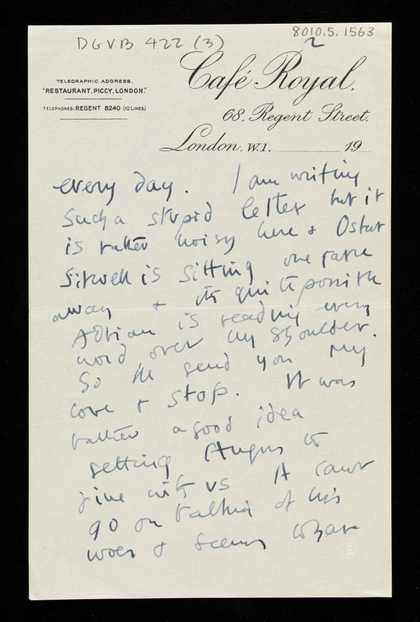 DGVB 422 (3)
8010.5.1563
2
TELEGRAPHIC ADDRESS.
"RESTAURANT, PICCY, LONDON."
TELEPHONES: REGENT 8240 (10 LINES)
Café Royal.
68. Regent Street.
London. W.1. 19
every day. I am writing
such a stupid letter but it
is rather noisy here & Osbert
Sitwell is sitting one table
away & it's quite
Adrian is reading every
word over my shoulder.
So I'll send you my
love & stop. It was
rather a good idea
getting Angus to
dine with us A cant
go on talking of his
woes & seems